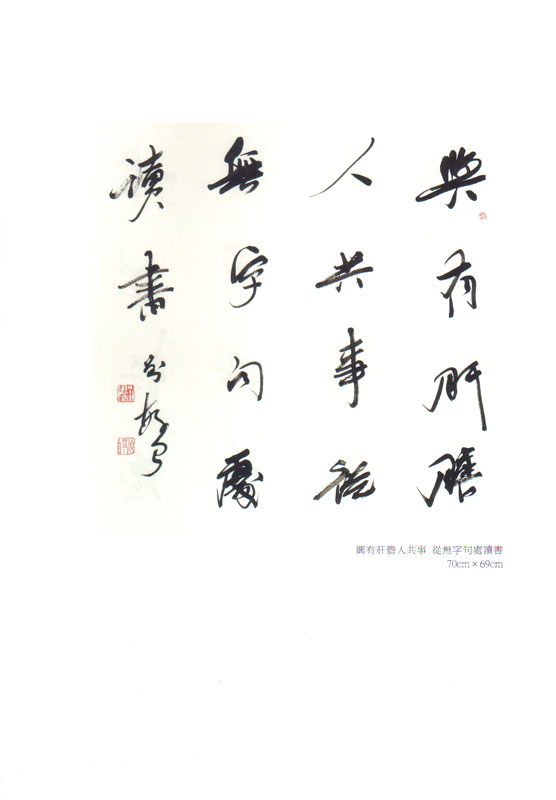 與有肝膽
人共事從
無字句處
讀書
興有肝膽人共事 從無字句處讀書
70cm × 69cm